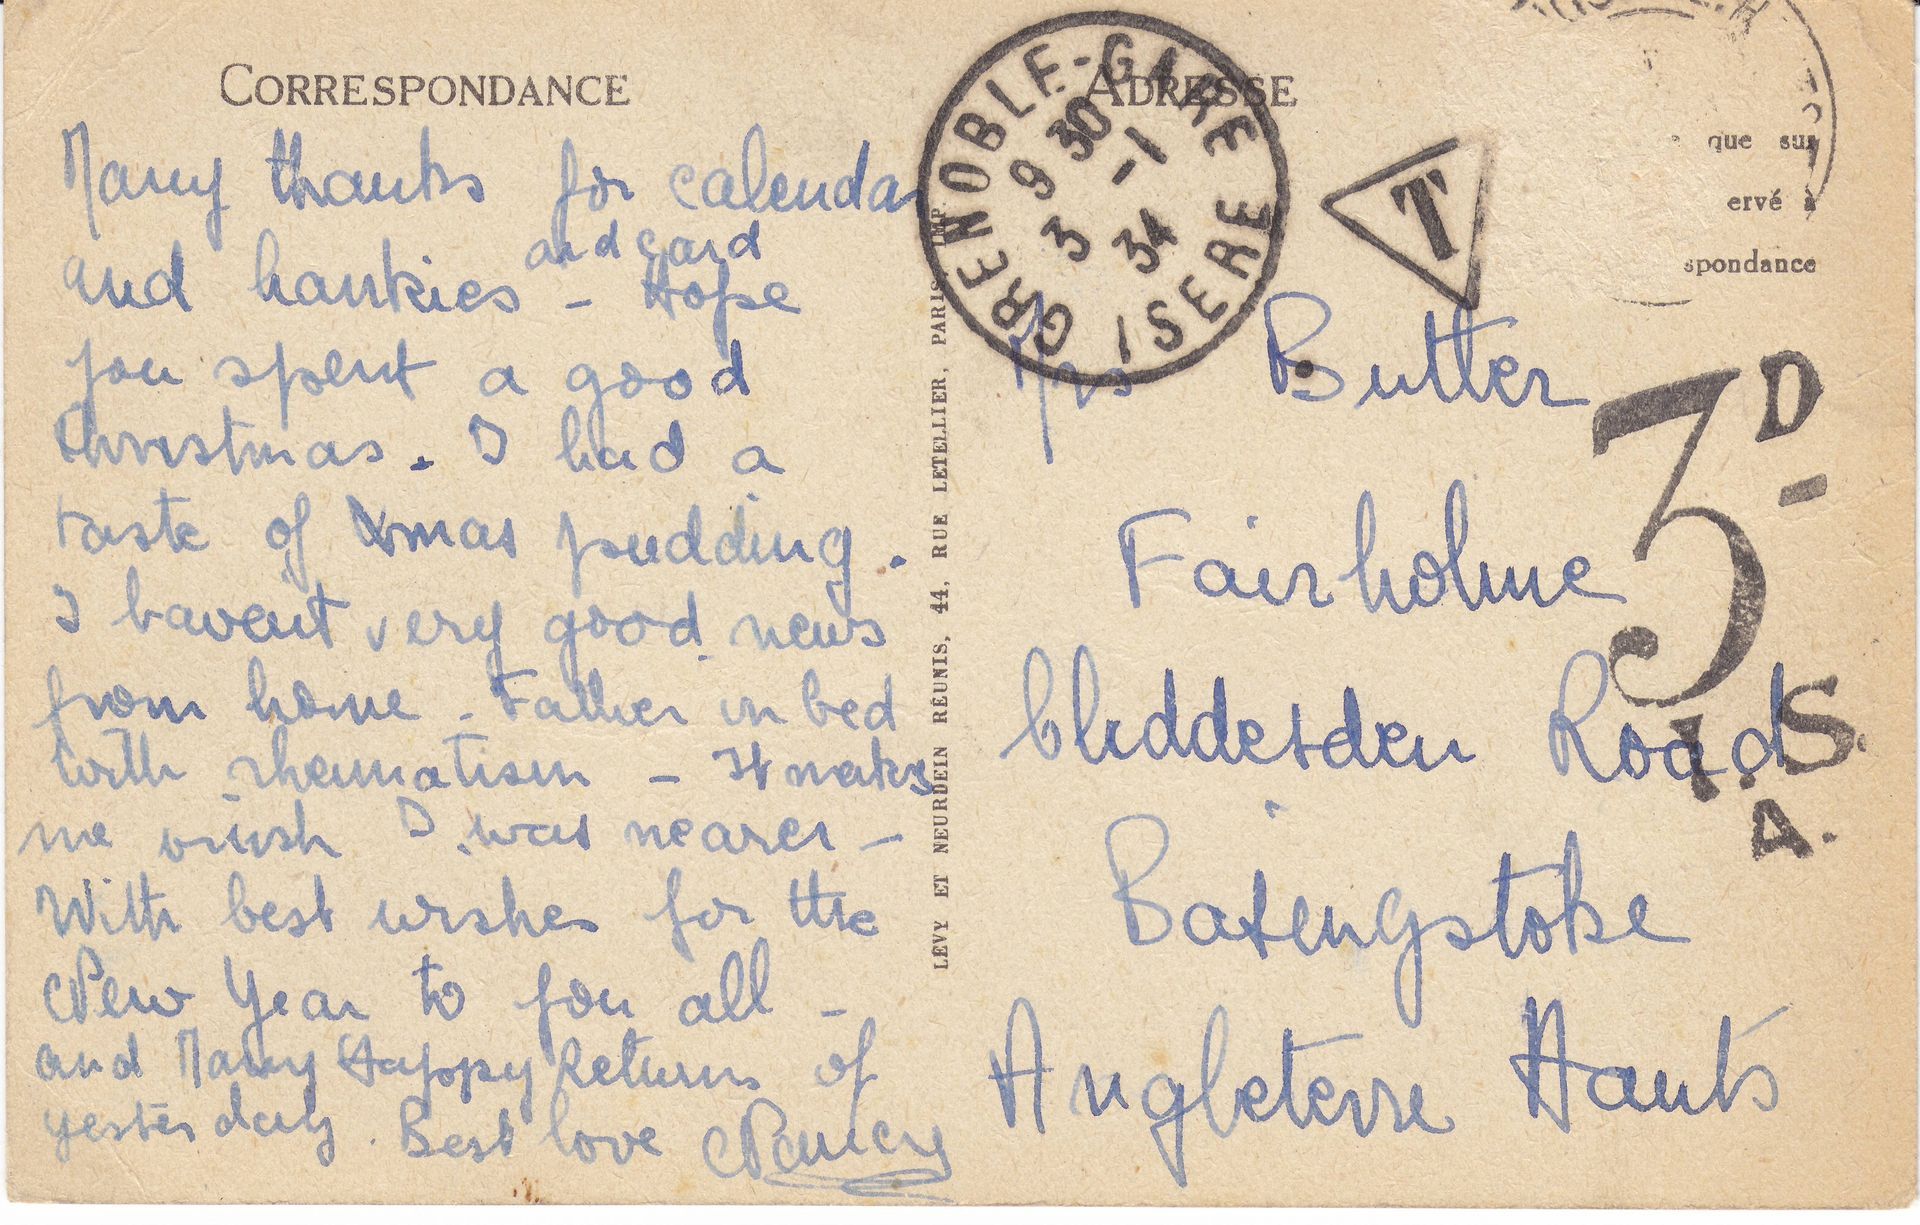 CORRESPONDANCE
Many thanks for calendar
and card
and hankies - Hope
you spent a good
Christmas. I had a
taste of Xmas pudding.
I haven't very good news
from home - Father in bed
with rheumatism - It makes
me wish I was nearer -
With best wishes for the
New Year to you all -
and Many Happy Returns of
yesterday. Best love Nancy
LÉVY ET NEURDEIN RÉUNIS, 44, RUE LETELLIER, PARIS IMP.
ADRESSE
GRENOBLE-GARE
9 30
3 -1
34
ISERE
T
que sur
ervé à
spondance
3D-
I.S.
A.
Mrs Butter
Fairholme
Cliddesden Road
Basingstoke
Angleterre Hants